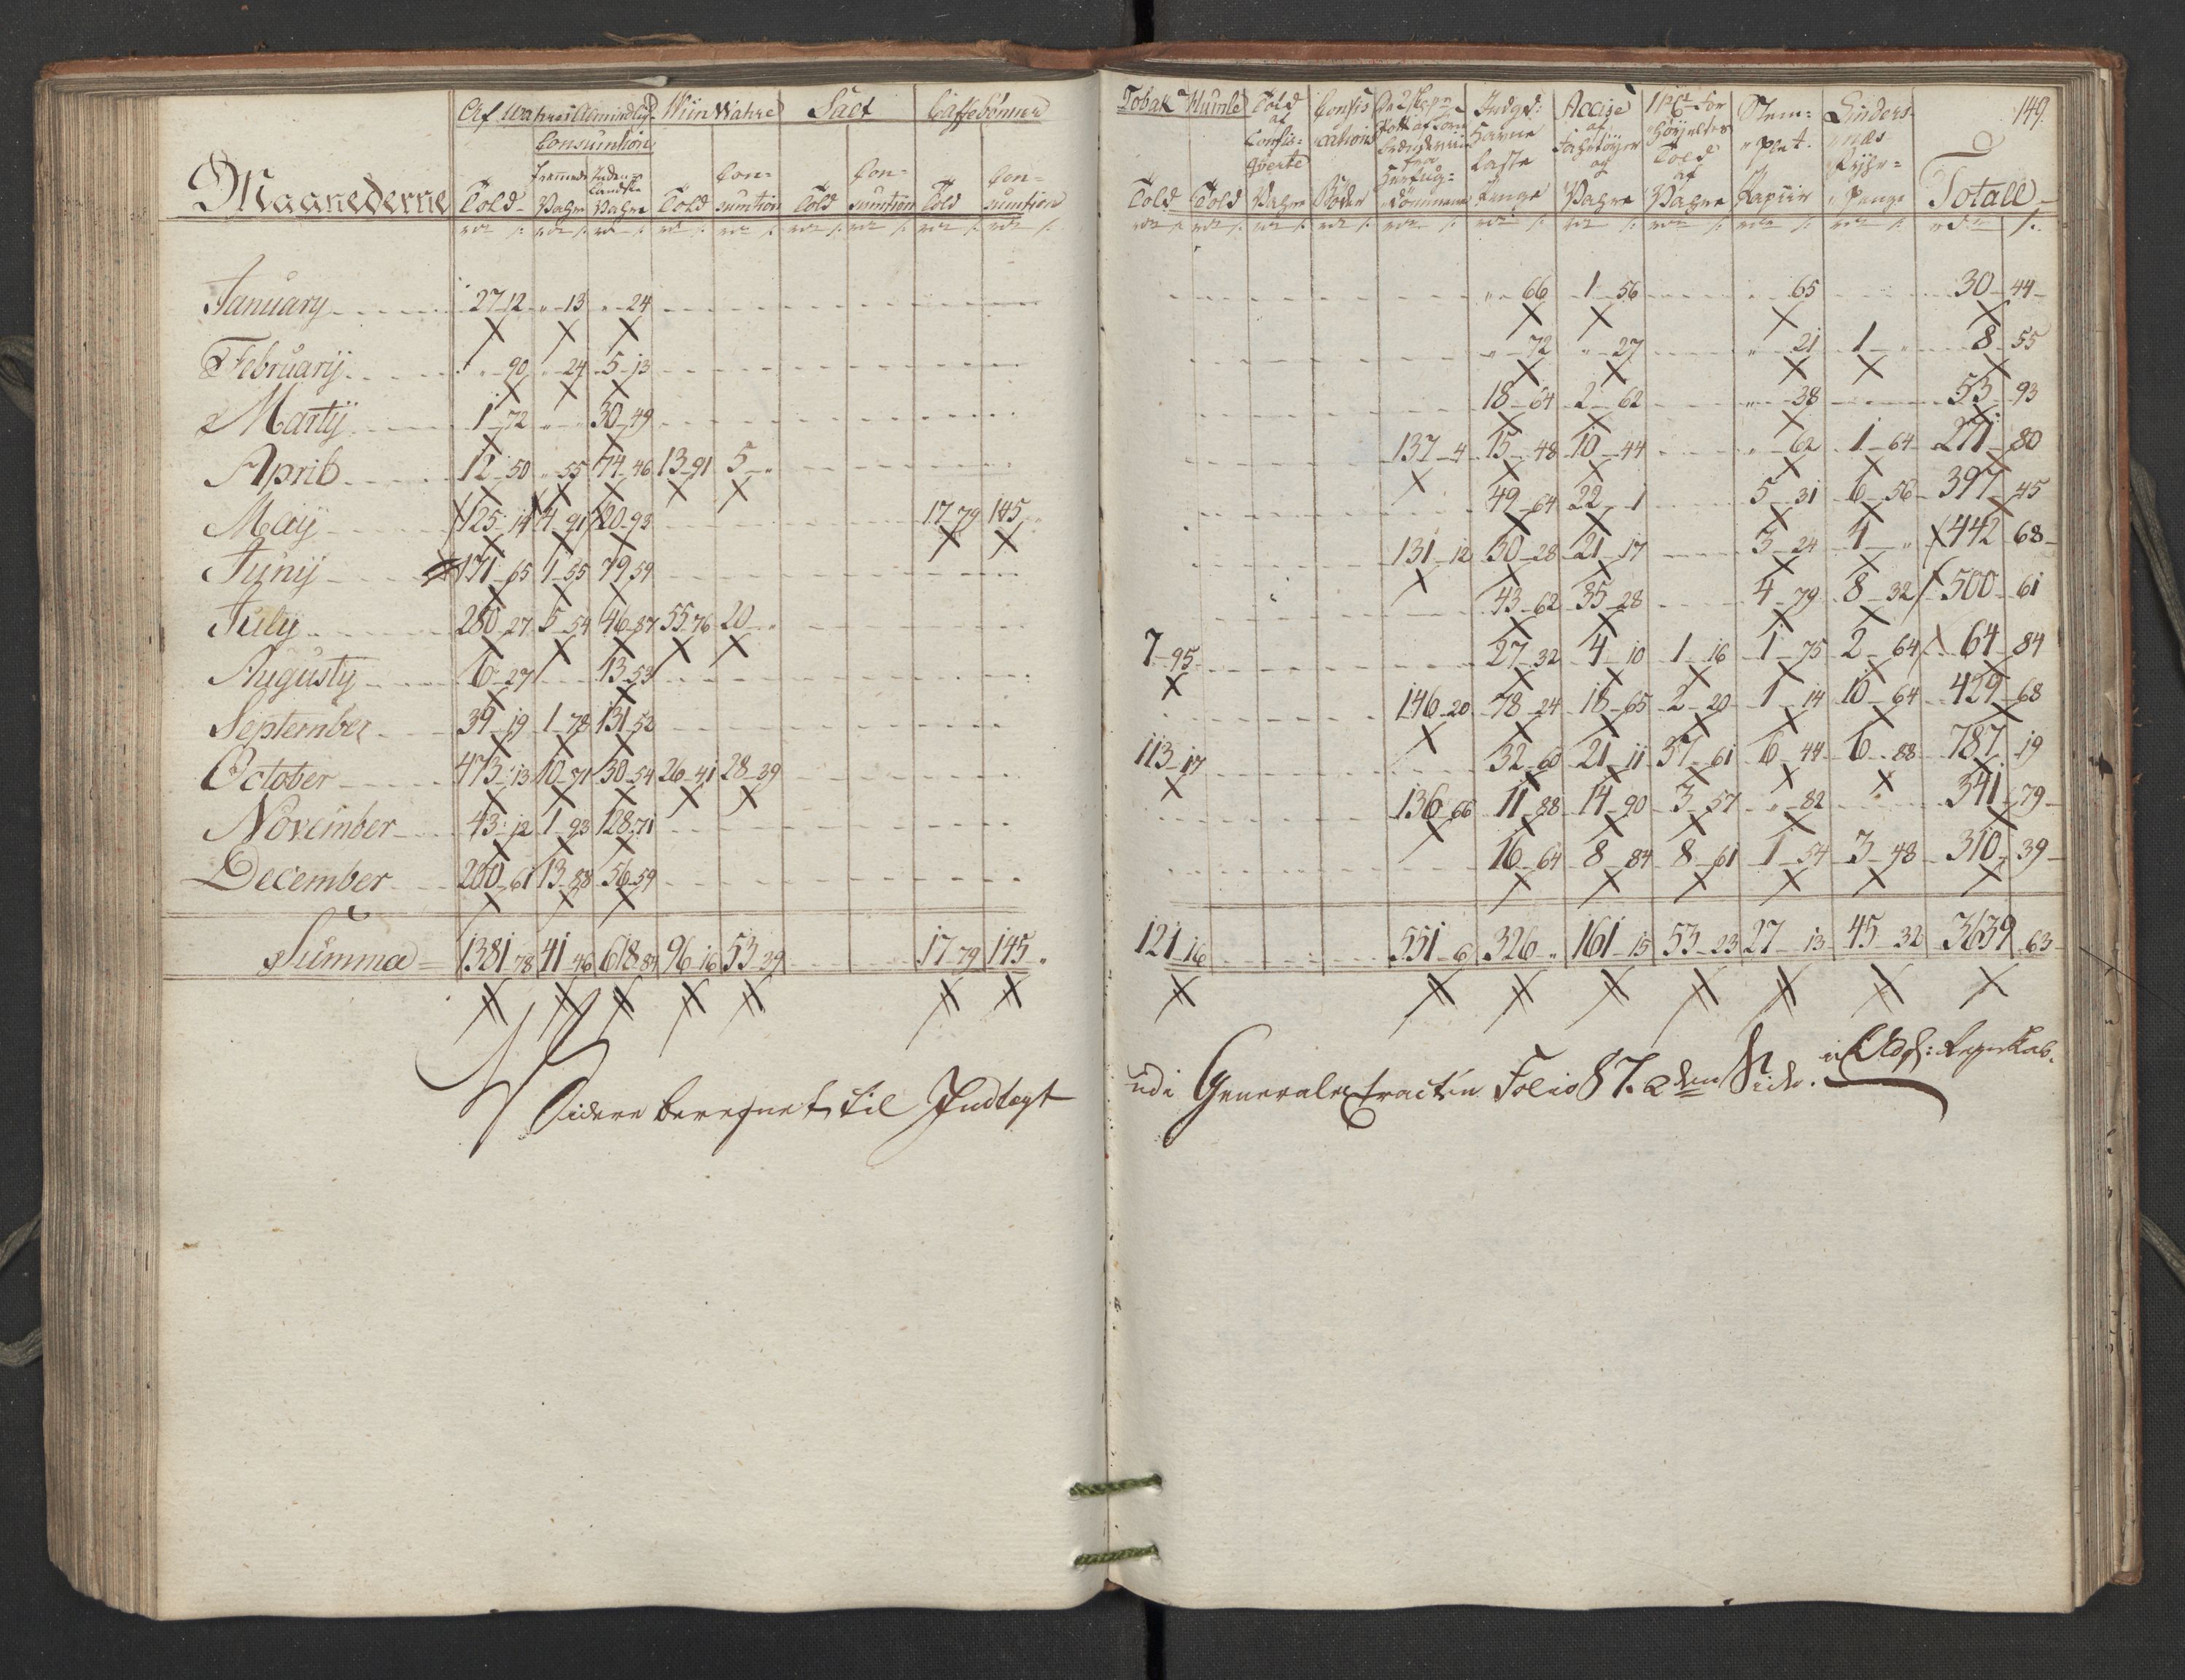 149.
Af Wahres Almindlig Wiin Wahre Salt Caffebønner
Consumtion
Fremmede Inden-landske Con- Con- Con-
Maanederne Told Vahre Vahre Told sumtion Told sumtion Told sumtion
Tobak Humle Told af Confis-qverte Confis-cations Indged: Havne Laste Penge Accise af Fartøyer og Vahre 1 pCt for Høyeeltes Told af Vahre Stem-plet Papiir Linders-næs Fyhr-Penge
Told Told Vahre Bøder Totall
January 27 12 " 13 " 24 " 66 1 56 65 30 44
February " 90 " 24 5 13 " 72 " 27 " 21 1 " 8 55
Martij 1 72 " " 30 49 18 64 2 62 " 38 53 93
April 12 50 " 55 74 46 13 91 5 " 137 4 15 48 10 44 " 62 1 64 271 80
Maij 125 14 4 91 20 93 17 79 145 " 49 64 22 1 5 31 6 56 397 45
Junij 171 65 1 55 79 59 131 12 30 28 21 17 3 24 4 " 442 68
July 280 27 5 54 46 87 55 76 20 " 43 62 35 28 4 79 8 32 500 61
Augusty 6 27 13 53 7 95 27 32 4 10 1 16 1 75 2 64 64 84
September 39 19 1 78 131 52 146 20 78 24 18 65 2 20 1 14 10 64 429 68
October 473 13 10 71 30 54 26 41 28 39 113 17 32 60 21 11 37 61 6 44 6 88 787 19
November 43 12 1 93 128 71 136 66 11 88 14 90 3 57 " 82 341 79
December 200 61 13 88 56 59 16 64 8 84 8 61 1 54 3 48 310 39
Summa 1381 78 41 46 618 84 96 16 53 39 17 79 145 " 121 16 551 6 326 " 161 15 53 23 27 13 45 32 3639 63
Videre beregnet til Indtægt udi Generalextracten Folio 87. 2den Side.